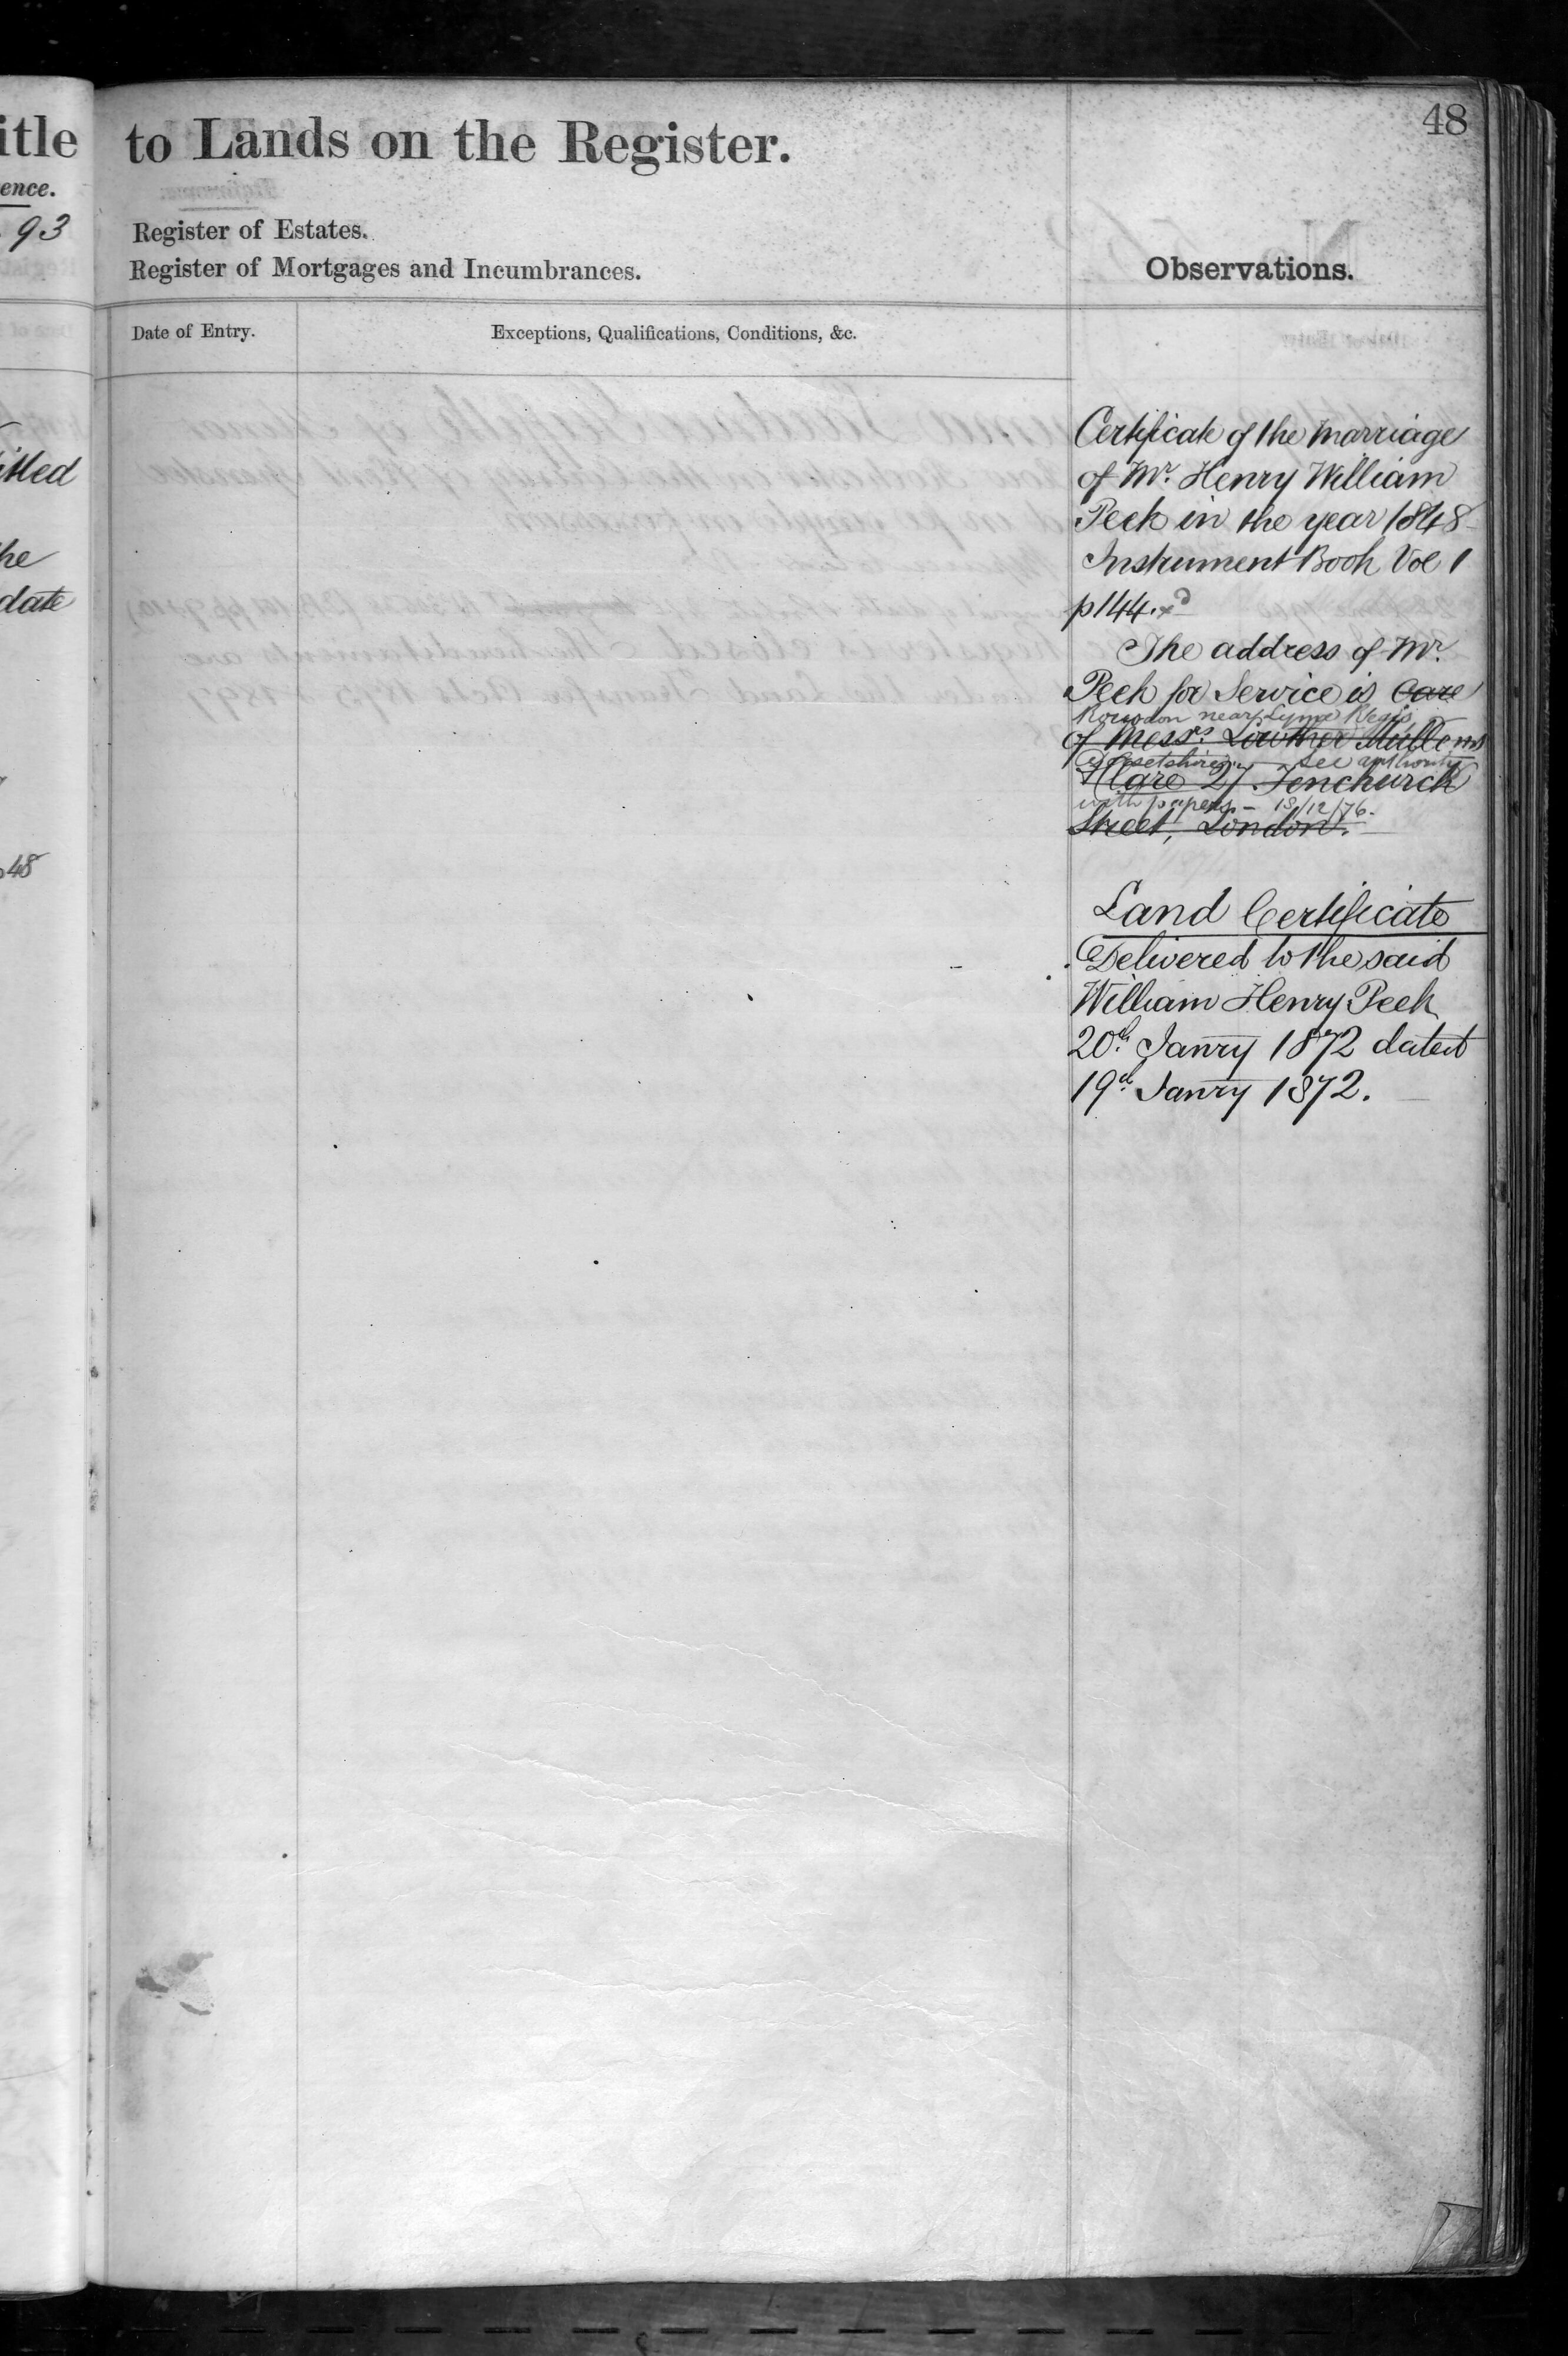 48
itle to Lands on the Register.
ence.
93
Register of Estates.
Register of Mortgages and Incumbrances.
Observations.
Date of Entry.
Exceptions, Qualifications, Conditions, &c.
itled
he
date
48
Certificate of the Marriage
of Mr. Henry William
Peek in the year 1848
Instrument Book Vol 1
p144. xd
The address of Mr.
Peek for Service is Care
Rousdon near Lyme Regis
of Messrs. Lowther Mullens
Dorsetshire. See authority
& Clare 27. Fenchurch
with papers - 18/12/76.
Street, London.
Land Certificate
Delivered to the said
William Henry Peek
20th. Janry 1872 dated
19th. Janry 1872.